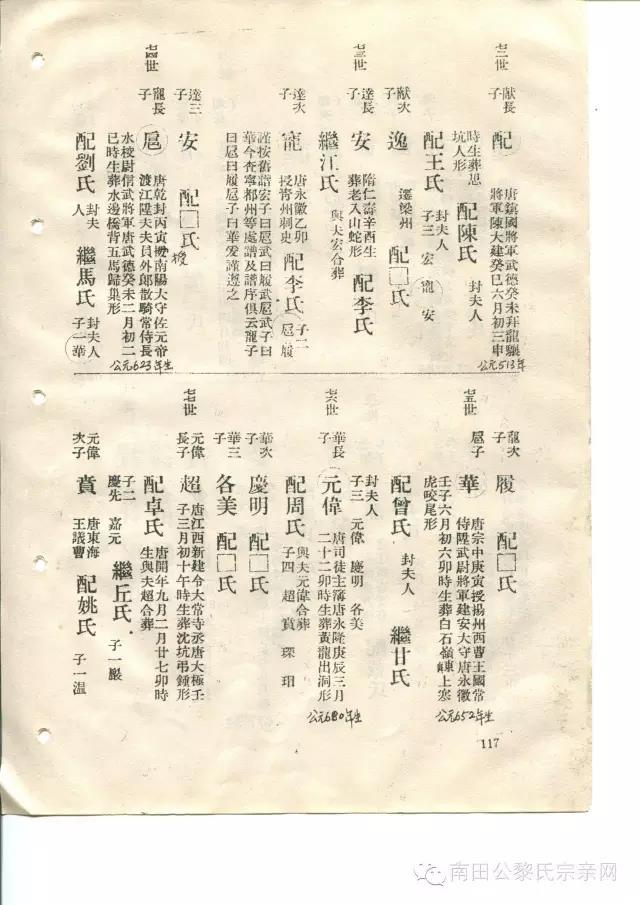 七二世
献長子
配
唐鎮國將軍武德癸未拜龍驤
將軍陳大建癸巳六月初三申
時生葬思
坑人形
配陳氏
封夫人
配王氏
封夫人
子三 宏 寵 安
献次子
逸
遷梁州
配□氏
公元513年
七三世
達長子
安
隋仁壽辛酉生
葬老入山蛇形
配李氏
繼江氏
與夫宏合葬
達次子
寵
唐永徽乙卯
授青州刺史
配李氏
子二
扈 履
謹按舊譜宏子曰扈武曰履武扈武子曰
華今查寧都州等處譜及譜序俱云寵子
曰扈曰履扈子曰華爰謹遵之
達三子
安
配□氏
七四世
寵長子
扈
唐乾封丙寅授南陽大守佐元帝
渡江陞夫夫員外郎散騎常侍長
水校尉信武將軍唐武德癸未二月初二
巳時生葬水邊橋背五馬歸巢形
授
配劉氏
封夫人
繼馬氏
封夫人
子一華
公元623年生
寵次子
履
配□氏
七五世
扈子
華
唐宗中庚寅授揚州西曹王國常
侍陞武尉將軍建安大守唐永徽
壬子六月初六卯時生葬白石嶺東上寨
虎咬尾形
配曾氏
封夫人
繼甘氏
封夫人
子三 元偉 慶明 各美
公元652年生
七六世
華長子
元偉
唐司徒主簿唐永隆庚辰三月
二十二卯時生葬黃龍出洞形
配周氏
與夫元偉合葬
子四 超 賁 琛 玿
華次子
慶明
配□氏
華三子
各美
配□氏
公元680年生
七七世
元偉長子
超
唐江西新建令大常寺丞唐大極壬
子三月初十午時生葬沈坑弔鍾形
配卓氏
唐開年九月二月廿七卯時
生與夫超合葬
子二
慶先 嘉元
繼丘氏
子一嚴
元偉次子
賁
唐東海
王議曹
配姚氏
子一温
117
南田公黎氏宗亲网